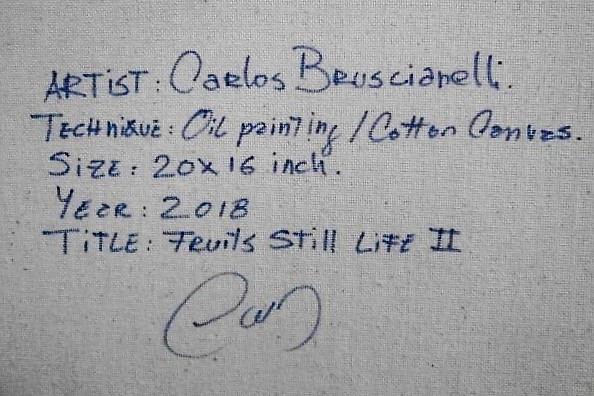 ARTiST: Carlos Bruscianelli.
TECHNiQUE: Oil painting / Cotton Canvas.
SiZE: 20x16 inch.
YEar: 2018
TiTLE: Fruits Still LiFE II